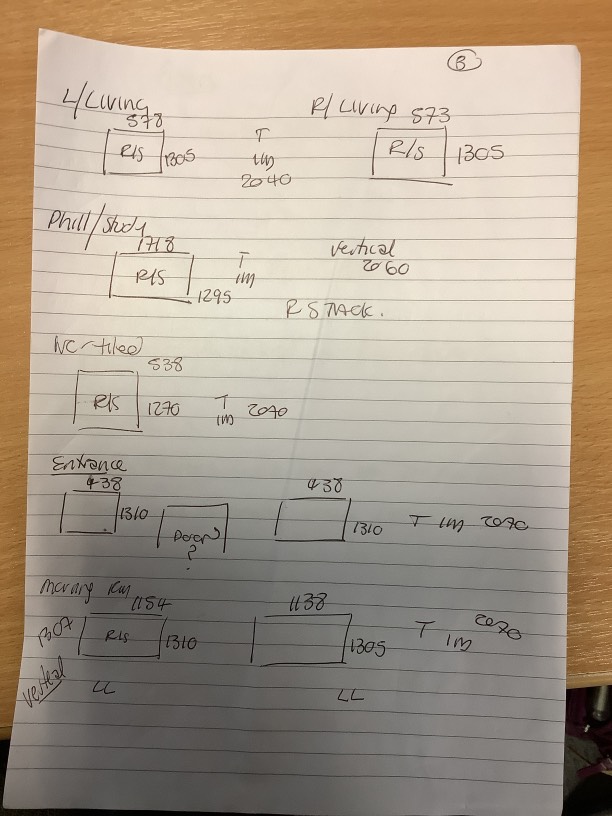 B
L/Living R/Living
578 573
R/S 1305 T R/S 1305
1M
2040
Phill/Study
1718 T vertical
R/S 1M 2060
1295 R STACK.
WC-tiled
538
R/S 1270 T 1M 2070
Entrance
438 438
1310 1310 T 1M 2070
Door
?
1154 1138
1307 R/S 1310 1305 T 1M 2070
vertical LL LL